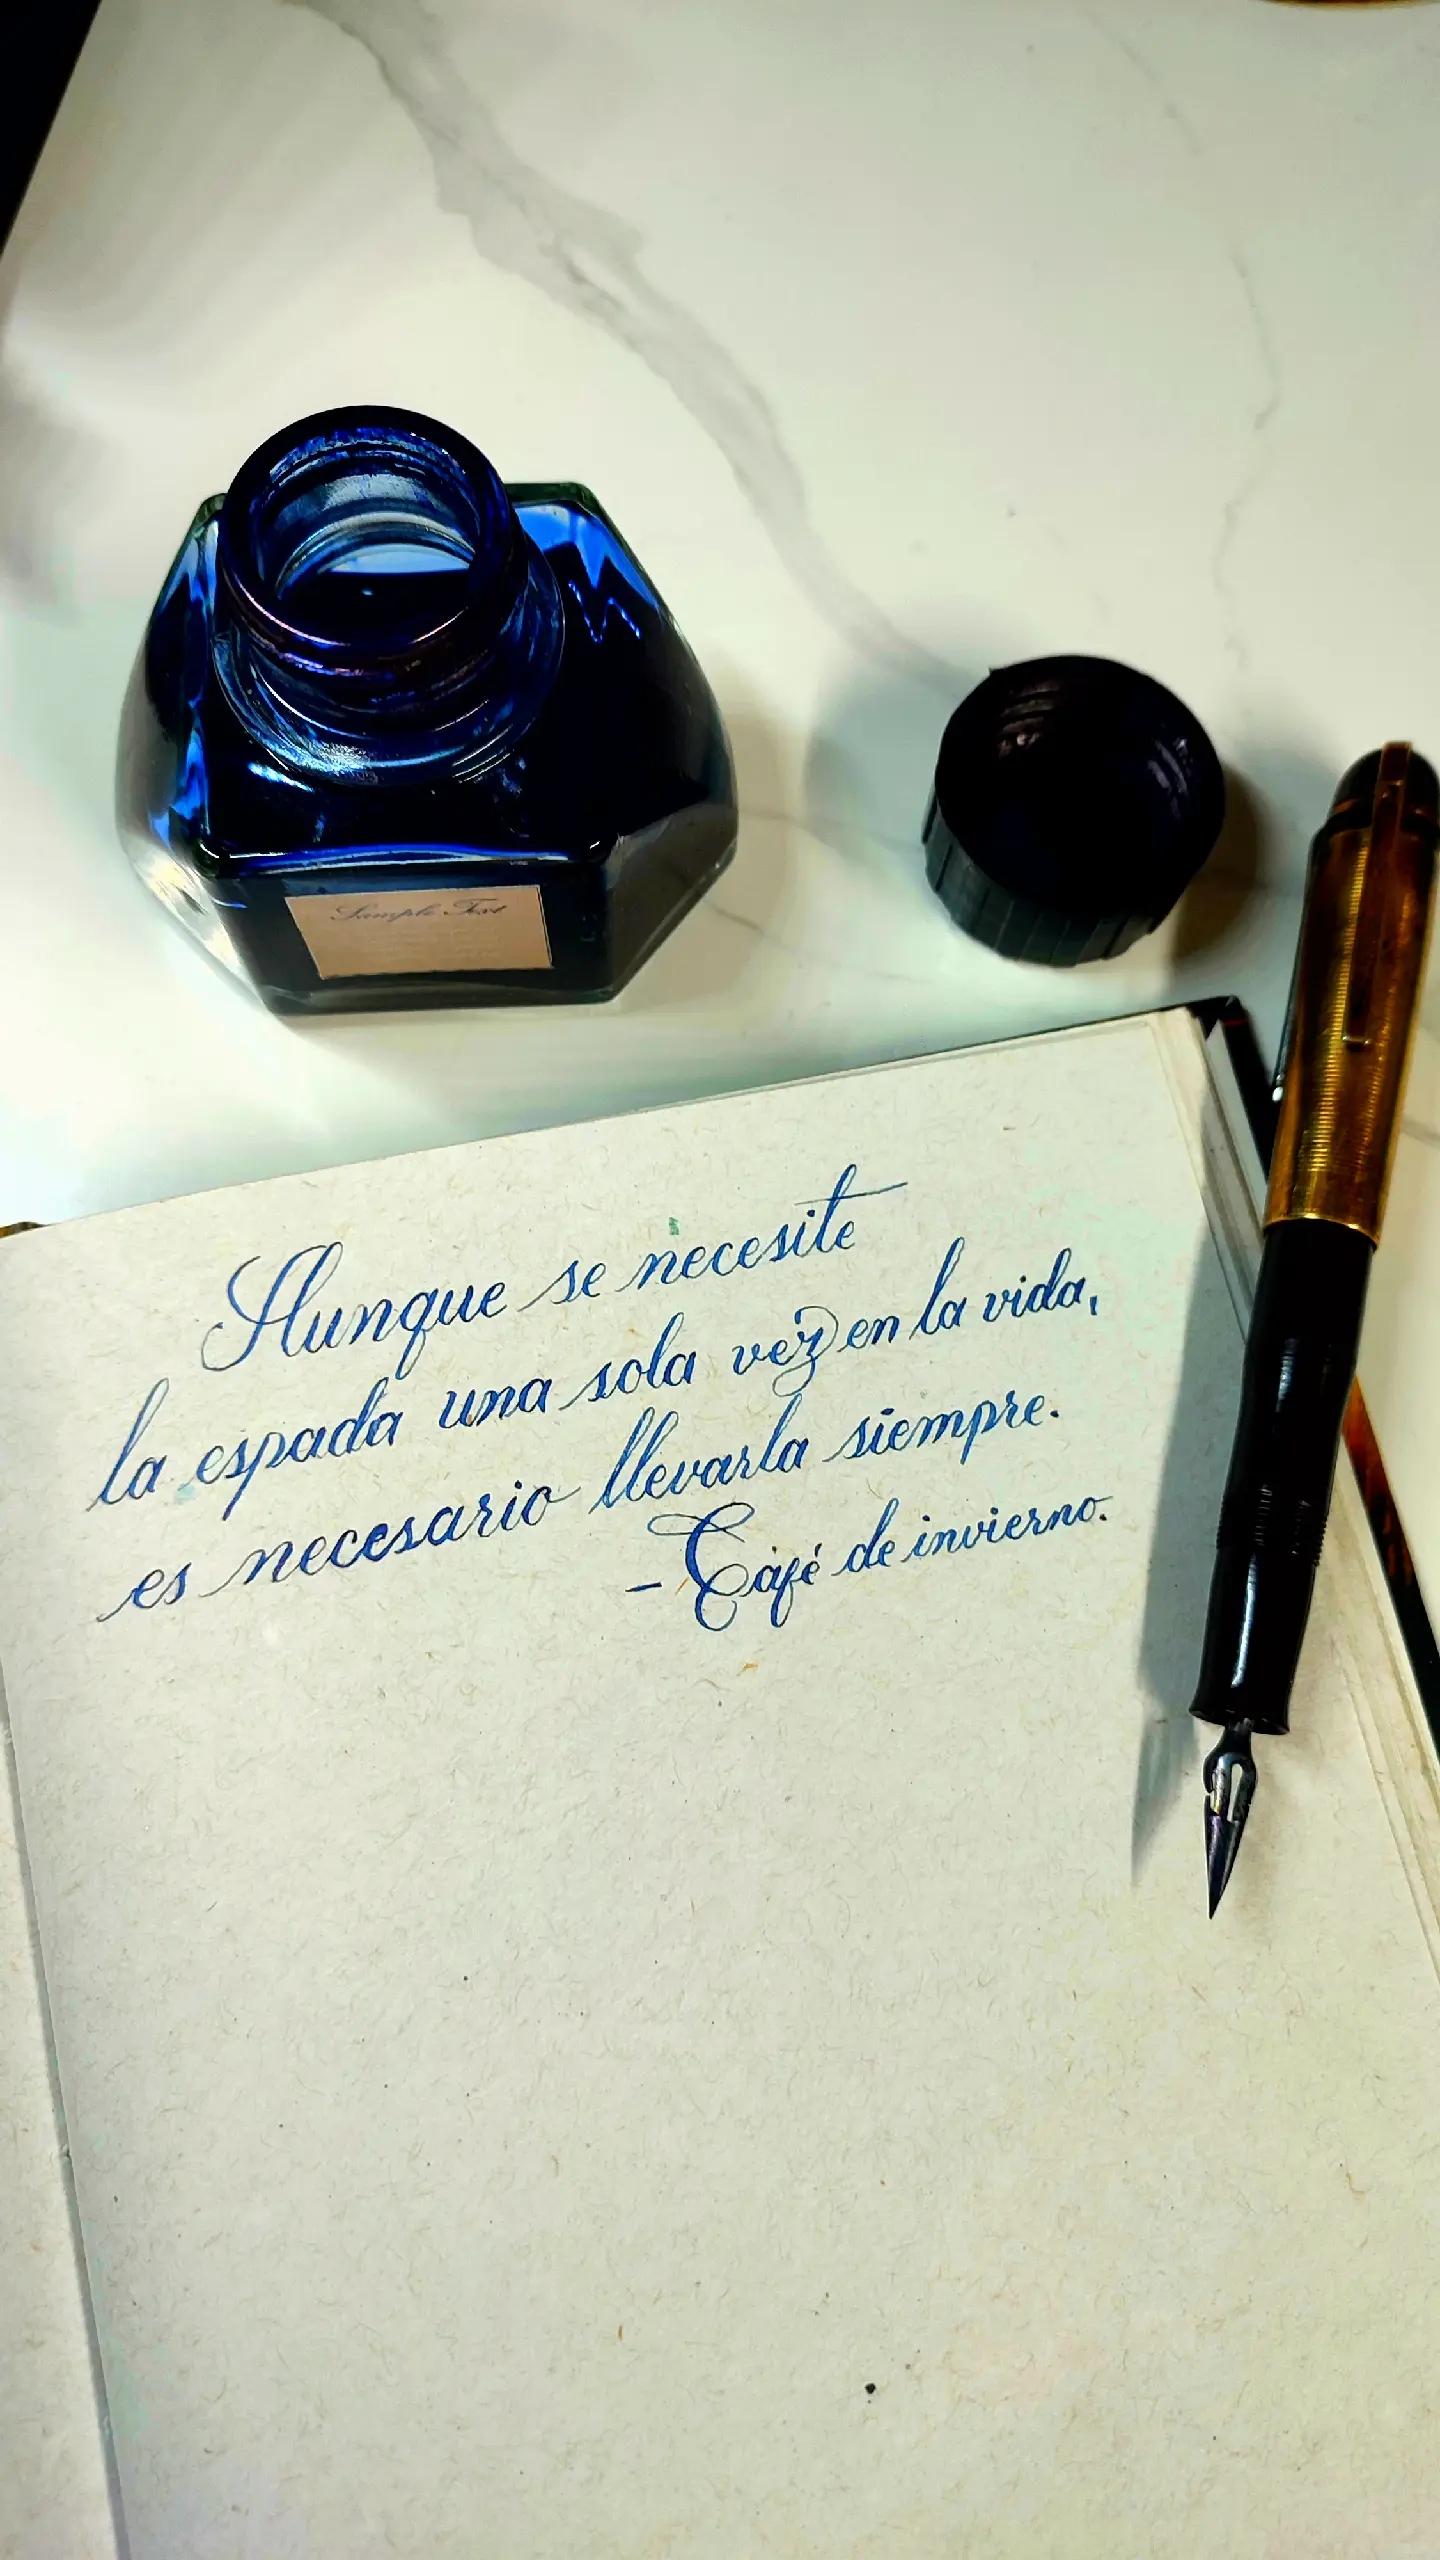 Sample Text
Aunque se necesite
la espada una sola vez en la vida,
es necesario llevarla siempre.
- Café de invierno.